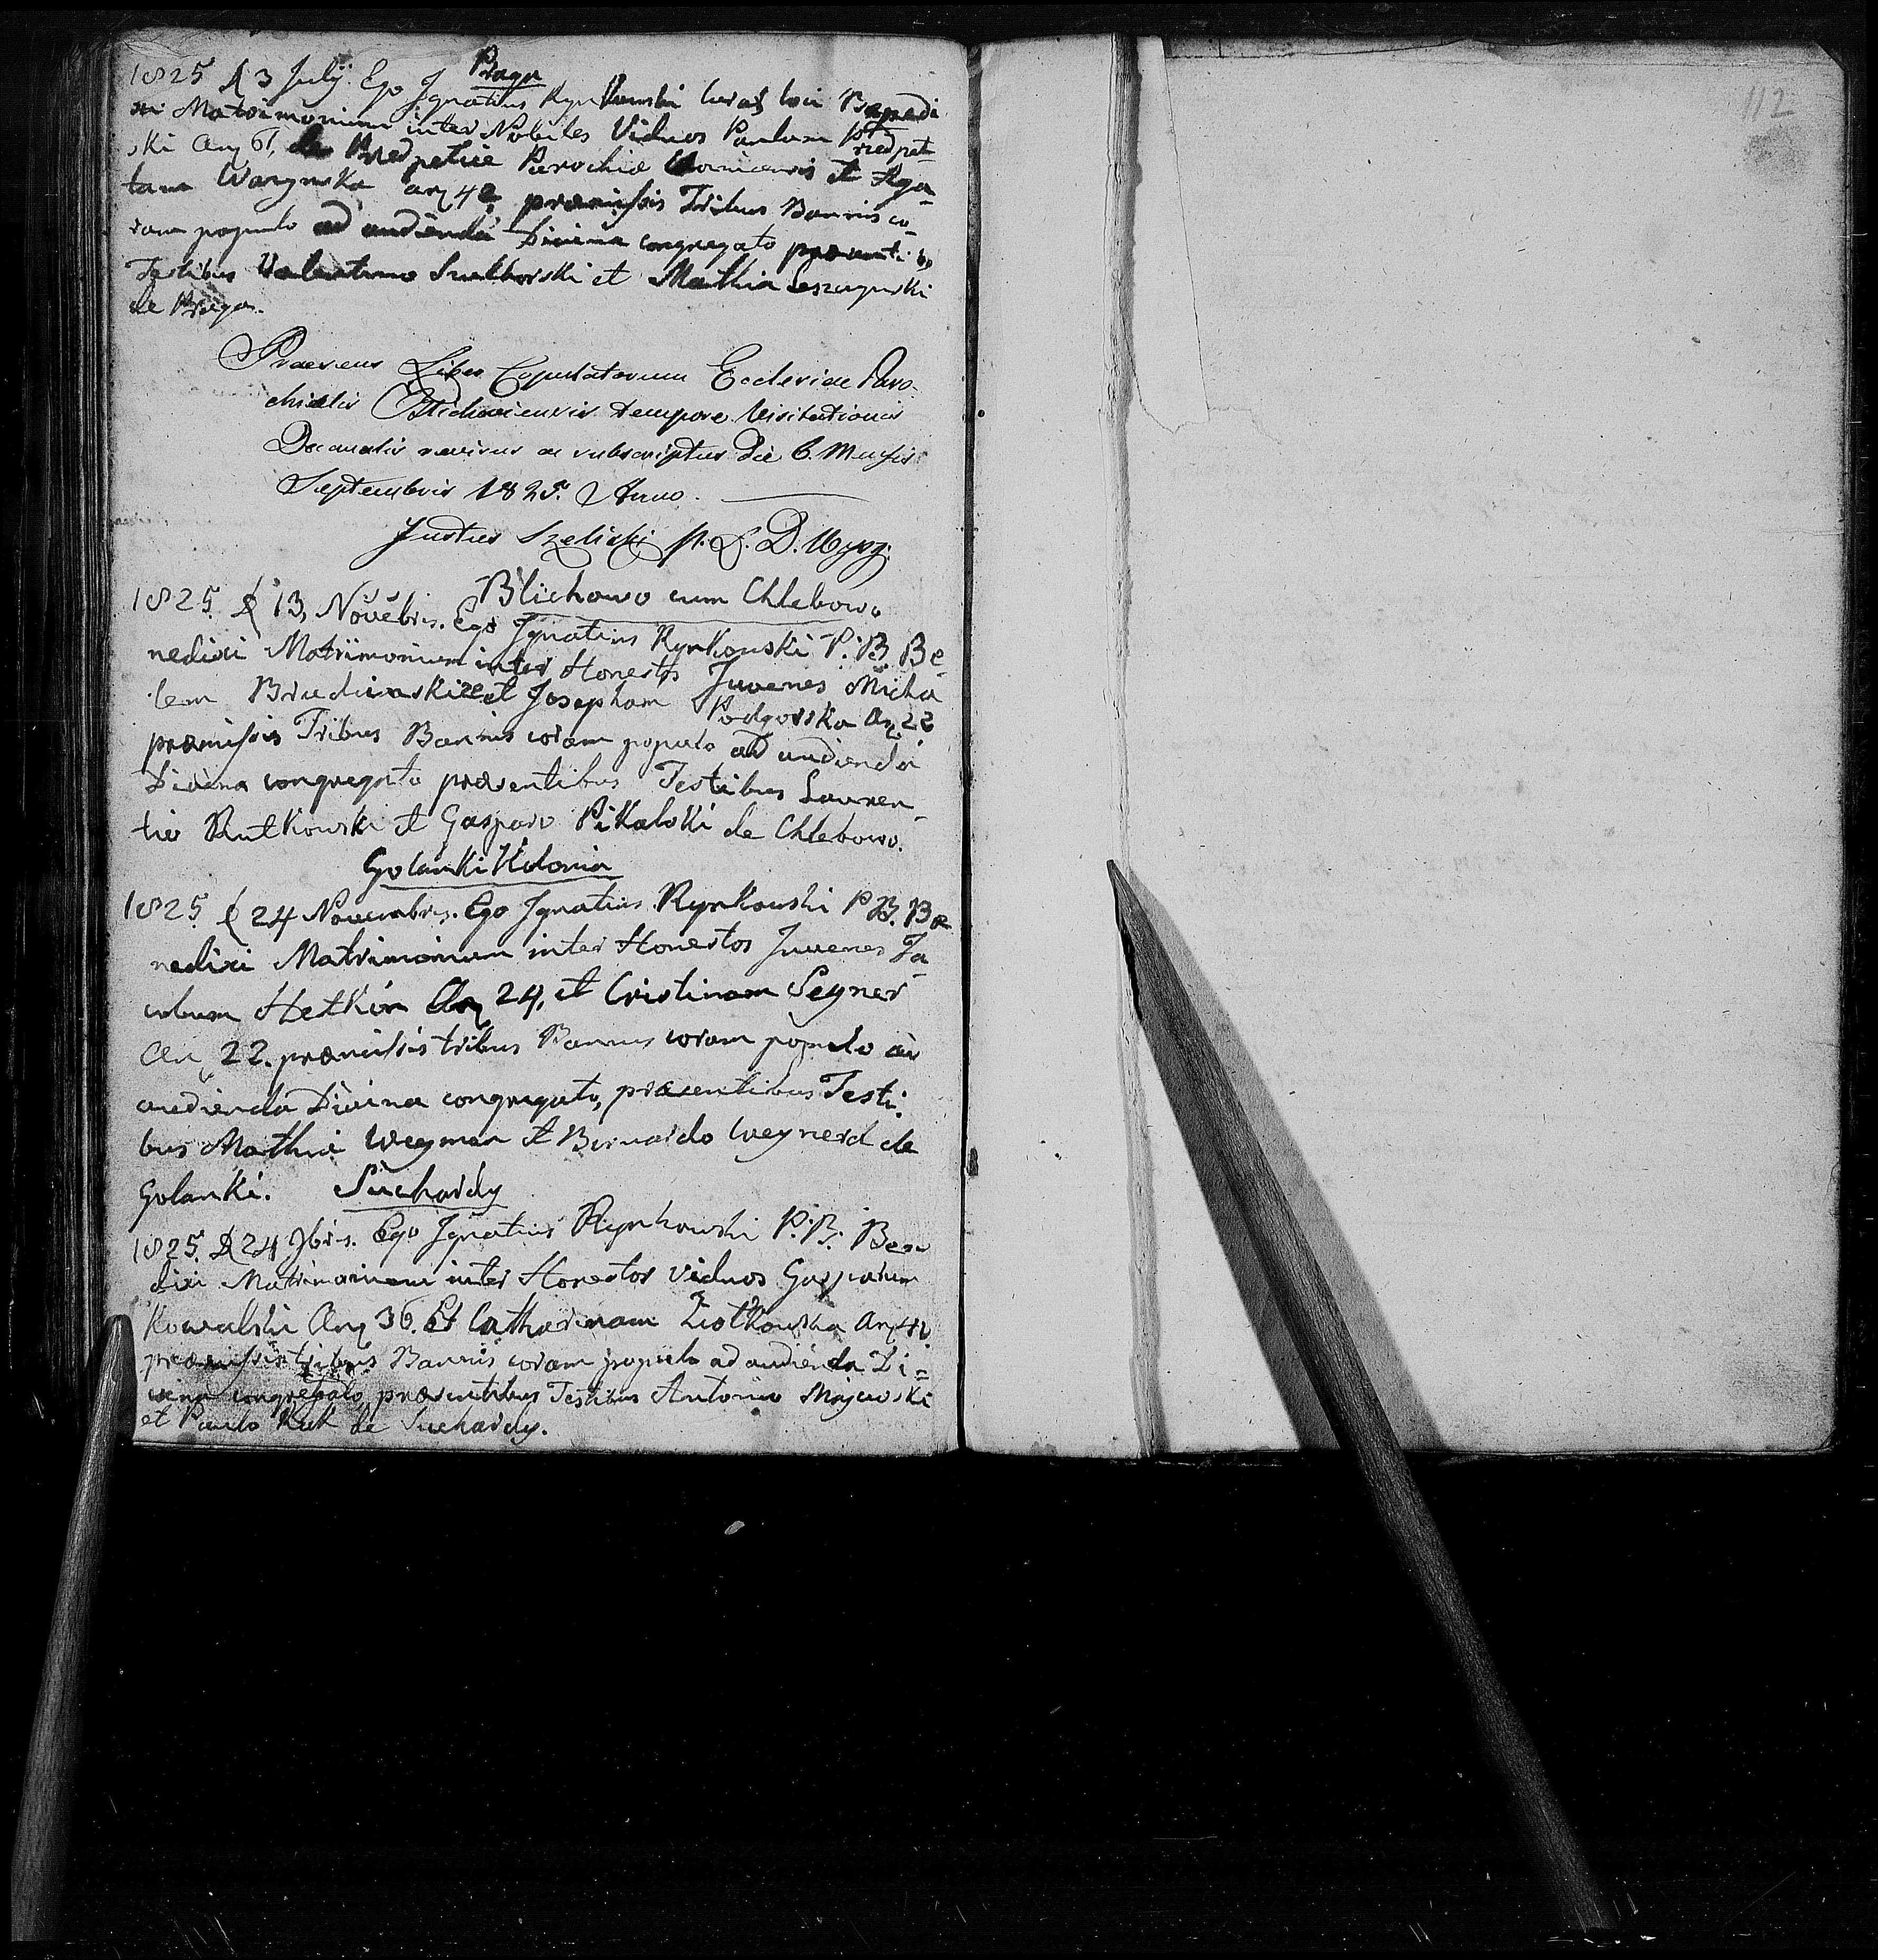 112
Praga
1825 d 3 July. Ego Ignatius Rynkowski Curat loci Benedi
xi Matrimonium inter Nobiles Viduos Paulum Przedpet
ski An 61, de Przedpelice Parochiæ et Aga
tam Warznska an 40, præmissis Tribus Bannis co
ram populo ad audienda Divina congregato præsentib
Testibus Valentino Sulborski et Mathia Leszczynski
de Praga.
Praesens Liber Copulatorum Ecclesiae Paro
chialis Blichoviensis tempore Visitationis
Decanalis revisus ac subscriptus Die 6. Mensis
Septembris 1825. Anno.
Justus Szeliski p. D. Wysz:
Blichowo cum Chlebowo
1825 d 13, Novebris. Ego Ignatius Rynkowski P. B. Be
nedixi Matrimonium inter Honestos Juvenes Micha
lem Brudzinski 22 et Josepham Podgorska An 22
præmissis Tribus Bannis coram populo ad audienda
Divina congregato præsentibus Testibus Lauren
tio Rutkowski et Gasparo Pikalski de Chlebowo.
Golanki Kolonia
1825 d 24 Novembris. Ego Ignatius Rynkowski P. B. Be
nedixi Matrimonium inter Honestos Juvenes Ja
cobum Hetkin An 24, et Cristinam Seyner
An 22. præmissis tribus Bannis coram populo ad
audienda Divina congregato, præsentibus Testi
bus Mathia Weyman et Bernardo Weynerd de
Golanki.
Suchardy
1825 d 24 9bris. Ego Ignatius Rynkowski P. B. Bene
dixi Matrimonium inter Honestos Viduos Gasparum
Kowalski An 36. Et Catharinam Ziotkowska An 40
præmissis tribus Bannis coram populo ad audienda Di=
vina congregato præsentibus Testibus Antonio Majewski
et Paulo Kuk de Suchardy.